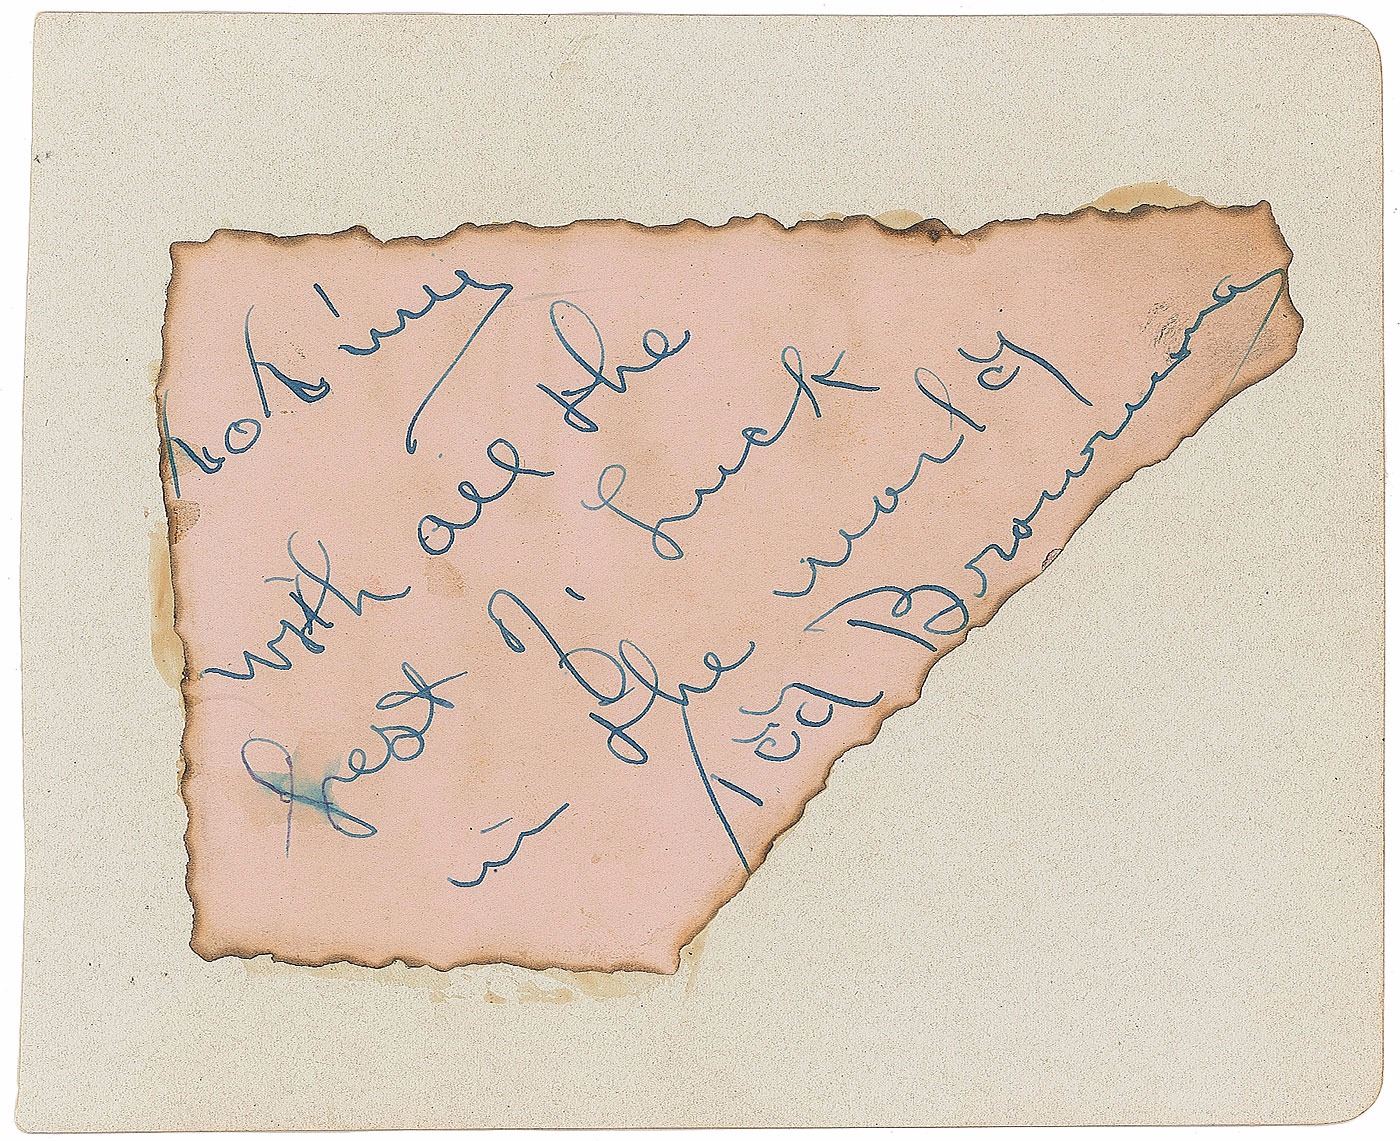 To
with all the
best of luck
in the world
Tod Browning